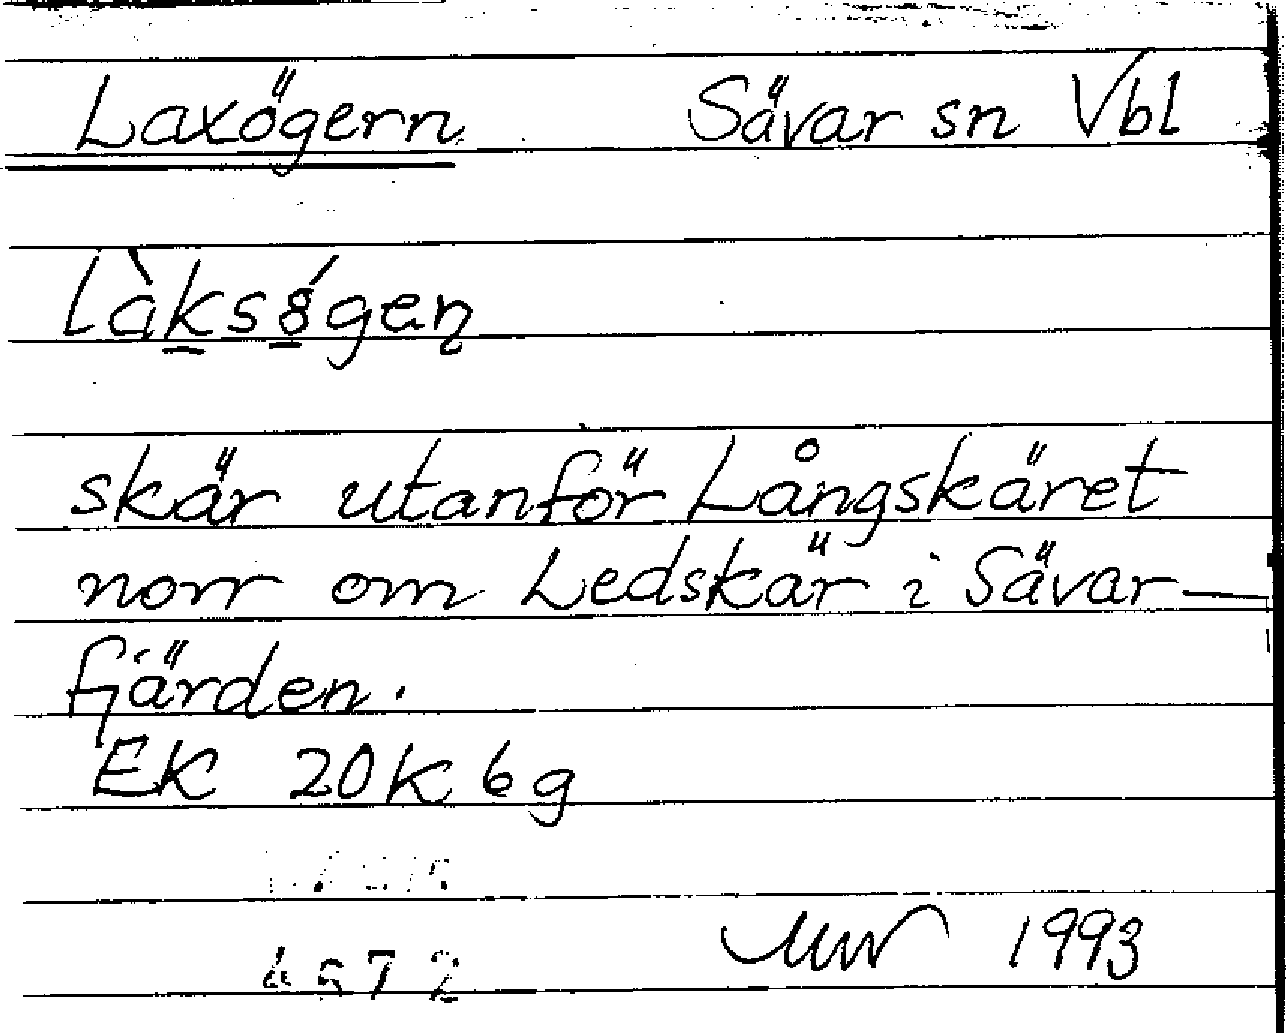 Laxögern Sävar sn Vbl
skär utanför Långskäret
norr om Ledskär i Sävar-
fjärden.
EK 20K6g
1993